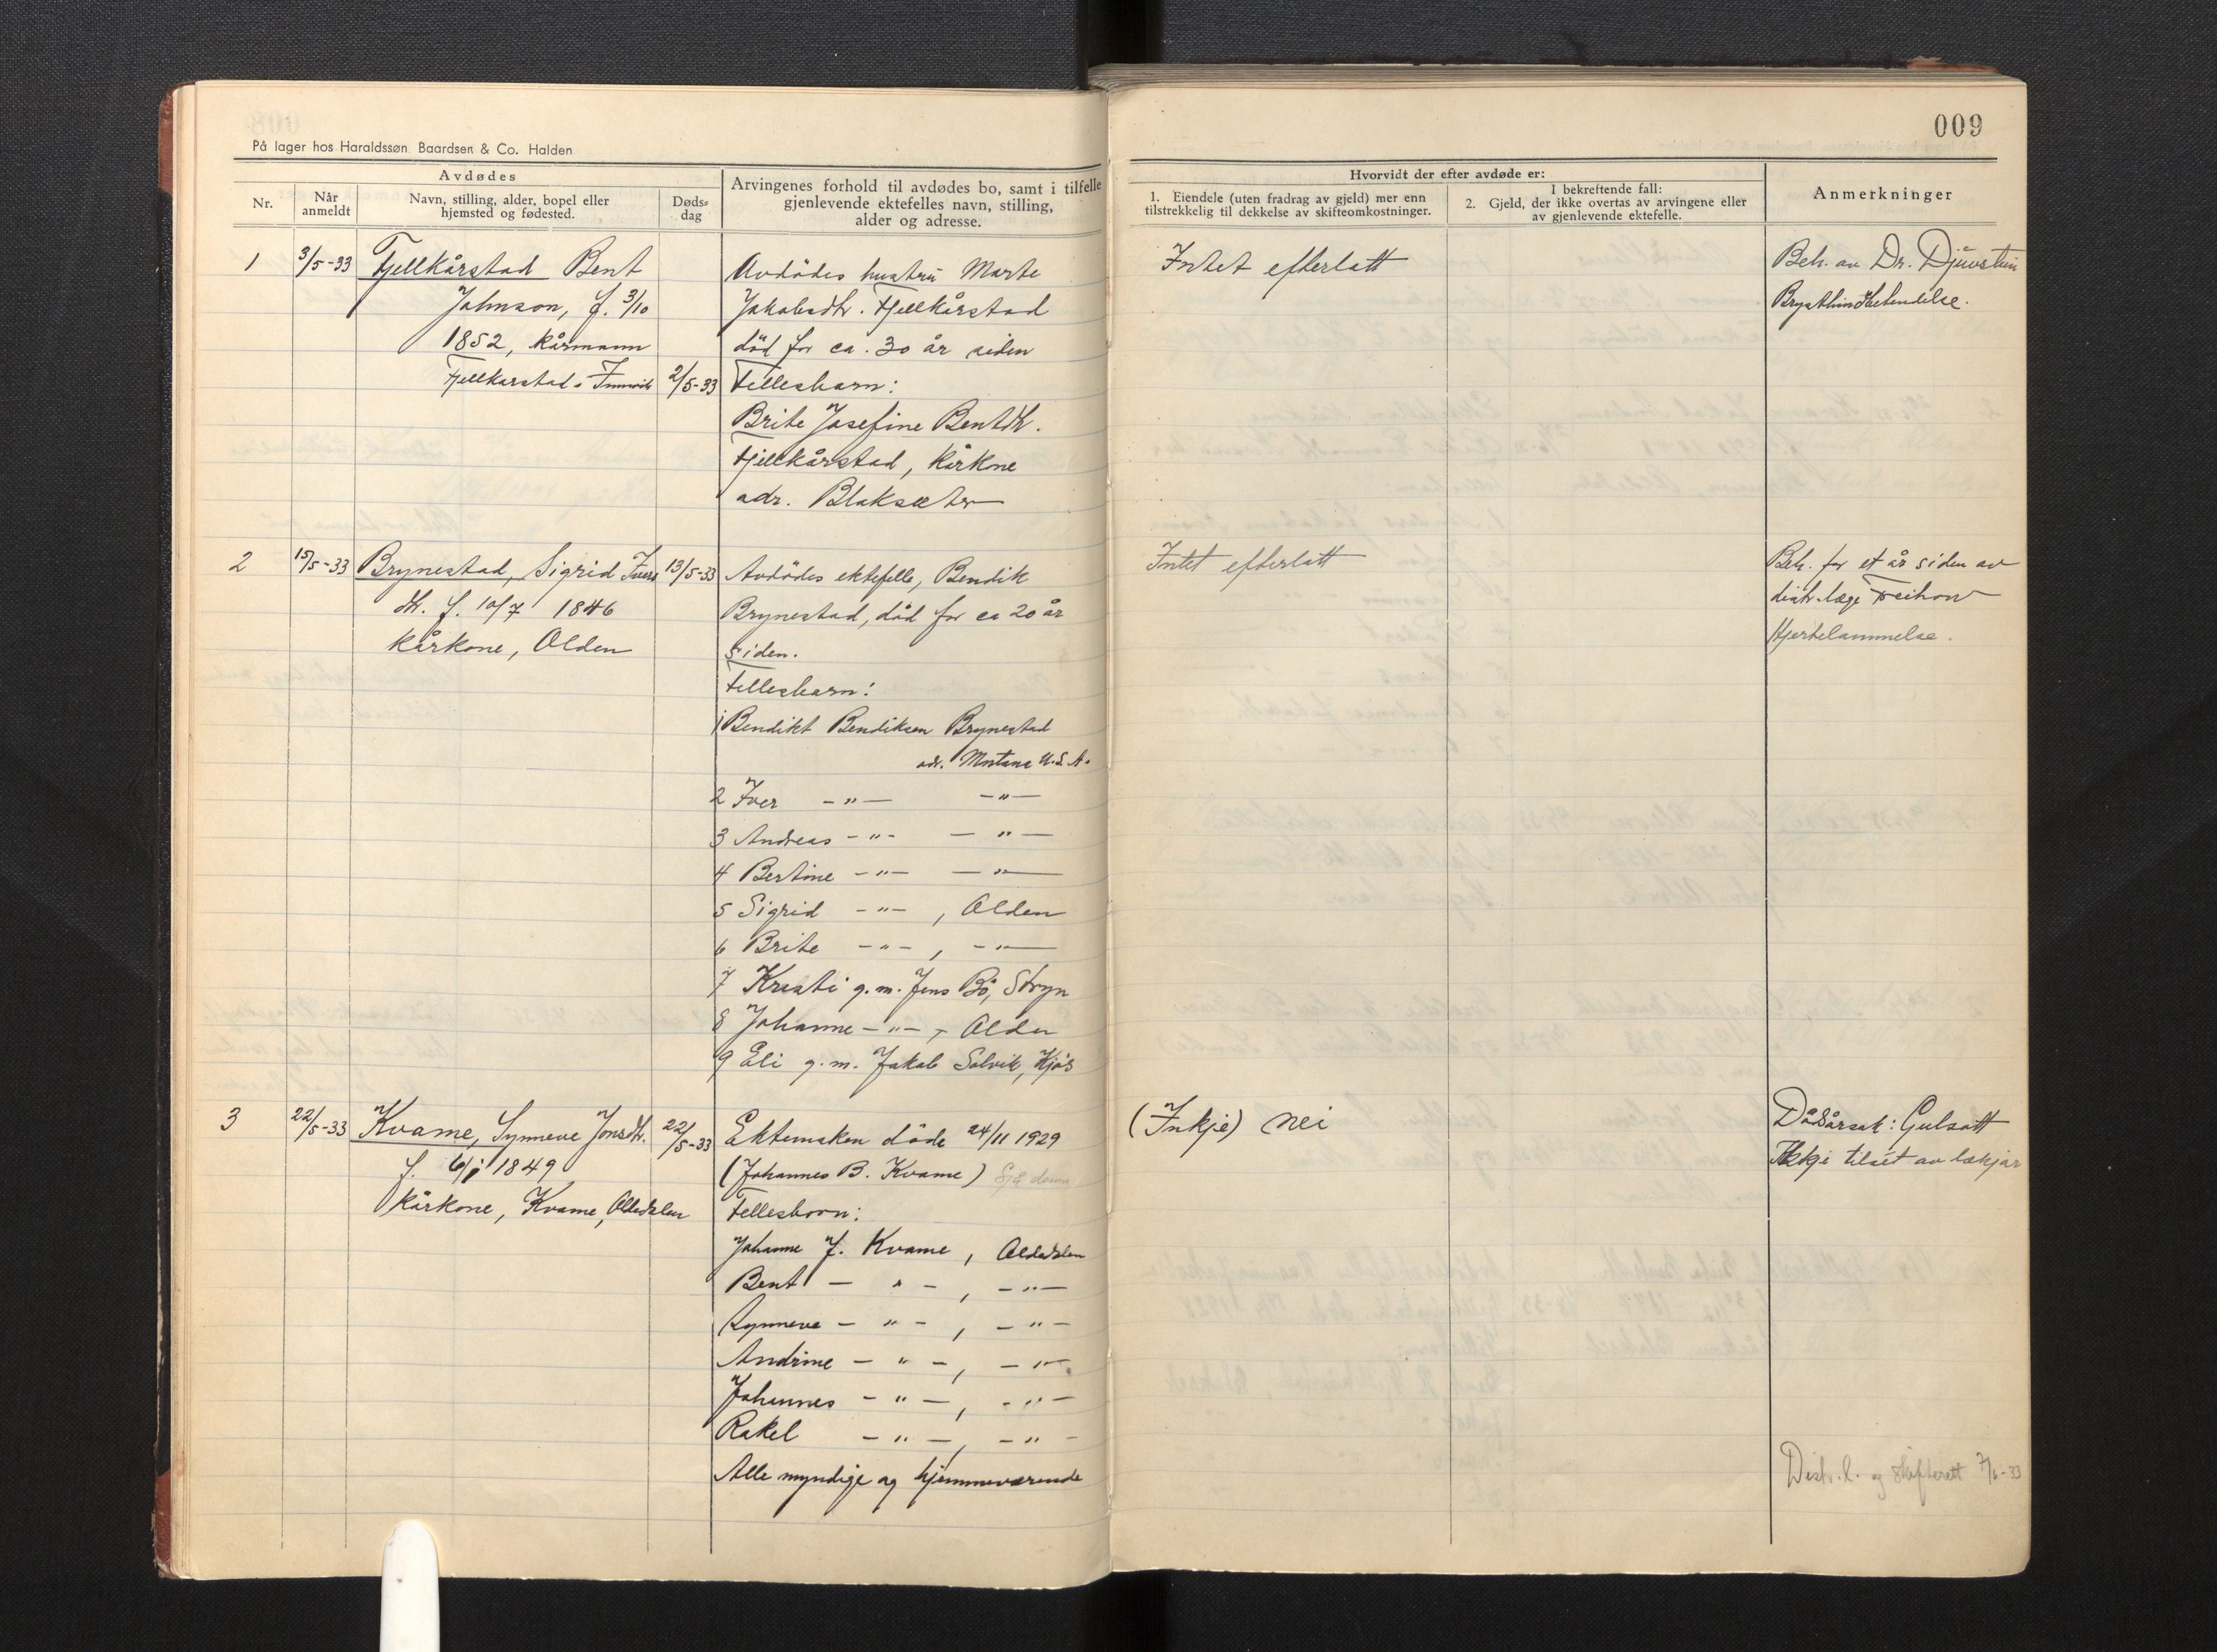 009
På lager hos Haraldssøn Baardsen & Co. Halden
Avdødes
Nr.
Når anmeldt
Navn, stilling, alder, bopel eller hjemsted og fødested.
Døds-dag
Arvingenes forhold til avdødes bo, samt i tilfelle
gjenlevende ektefelles navn, stilling,
alder og adresse.
Hvorvidt der efter avdøde er:
1. Eiendele (uten fradrag av gjeld) mer enn
tilstrekkelig til dekkelse av skifteomkostninger.
I bekreftende fall:
2. Gjeld, der ikke overtas av arvingene eller
av gjenlevende ektefelle.
Anmerkninger
1 3/5-33 Fjellkårstad Bent
Johnson, f. 3/10
1852, kårmann
Fjellkårstad i Innvik 2/5-33
Avdödes hustru Marte
Jakobsdtr. Fjellkårstad
död for ca. 30 år siden
Fellesbarn:
Brite Josefine Bentdtr.
Fjellkårstad, kårkone
adr. Blaksæter
Intet efterlatt
Beh. av Dr. Djuvstein
Brysthinnebetendelse.
2 15/5-33 Brynestad, Sigrid Ivers
dtr. f. 10/7 1846
kårkone, Olden
13/5-33
Avdödes ektefelle, Bendik
Brynestad, död for ca 20 år
siden.
Fellesbarn:
1 Bendikt Bendiksen Brynestad
adr. Montana U.S.A.
2 Iver -"- -"-
3 Andreas -"- -"-
4 Bertine -"- -"-
5 Sigrid -"- , Olden
6 Brite -"- , -"-
7 Kristi g.m. Jens Bö, Stryn
8 Johanne -"- , Olden
9 Eli g.m. Jakob Solvik, Kjøs
Intet efterlatt
Beh. for et år siden av
distr.læge
Hjertelammelse.
3 22/5-33 Kvame, Synneve Jonsdtr.
f. 1849
kårkone, Kvame, Oldedalen
22/5-33
Ektemaken döde 24/11 1929
(Johannes B. Kvame) Sjå denne
Fellesborn:
Johanne J. Kvame, Oldedalen
Bent - " - , -"-
Synneve - " - , - " -
Andrine - " - , - " -
Johannes - " - , - " -
Rakel - " - , - " -
Alle myndige og hjemmeværende
(Inkje) nei
Dödsårsak: Gulsott
Ikkje tilsét av lækjar
Distr.l. og skifterett 7/6-33